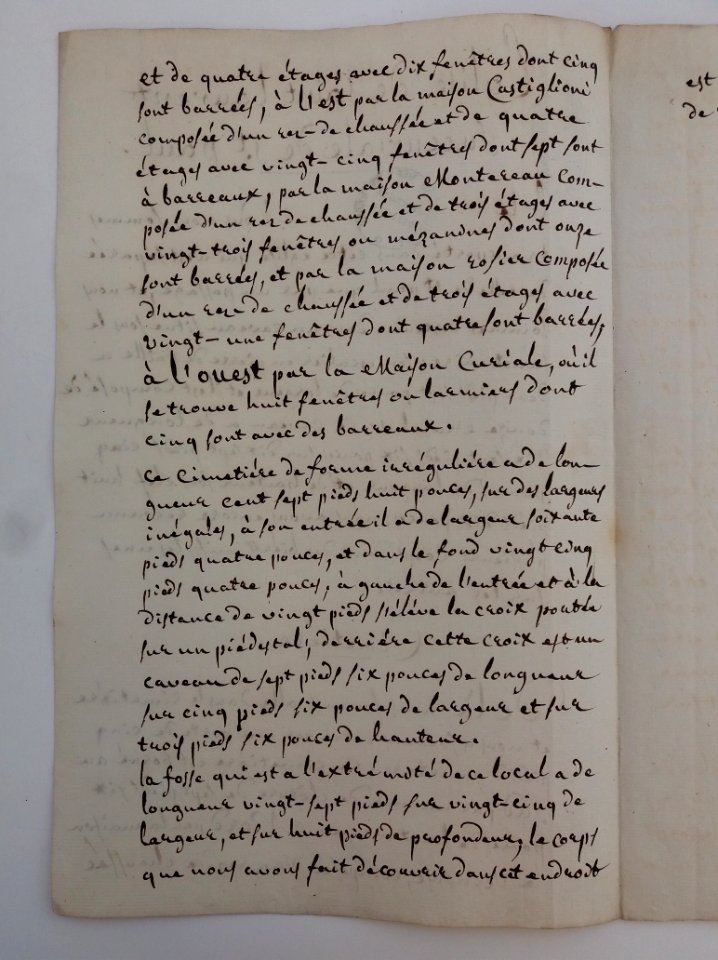 et de quatre étages avec dix fenêtres dont cinq
sont barrées, à l'est par la maison Castiglioni
composée d'un rez-de chaussée et de quatre
étages avec vingt-cinq fenêtres dont sept sont
à barreaux, par la maison Montereau Com-
posée d'un rez de chaussée et de trois étages avec
vingt-trois fenêtres ou mézanines dont onze
sont barrées, et par la maison rosier Composée
d'un rez-de chaussée et de trois étages avec
vingt-une fenêtres dont quatre sont barrées,
à l'ouest par la Maison Curiale, où il
se trouve huit fenêtres ou larmiers dont
cinq sont avec des barreaux.
ce Cimetiére de forme irréguliére a de lon-
gueur cent sept pieds huit pouces, sur des largeurs
inégales, à son entrée il a de largeur soixante
pieds quatre pouces, et dans le fond vingt cinq
pieds quatre pouces, à gauche de l'entrée et à la
distance de vingt pieds s'éléve la croix portée
sur un piédestal; derriére cette croix est un
caveau de sept pieds six pouces de longueur
sur cinq pieds six pouces de largeur et sur
trois pieds six pouces de hauteur.
la fosse qui est a l'extrémité de ce local a de
longueur vingt-sept pieds sur vingt-cinq de
largeur, et sur huit pieds de profondeur, le corps
que nous avons fait découvrir dans cet endroit
est
de